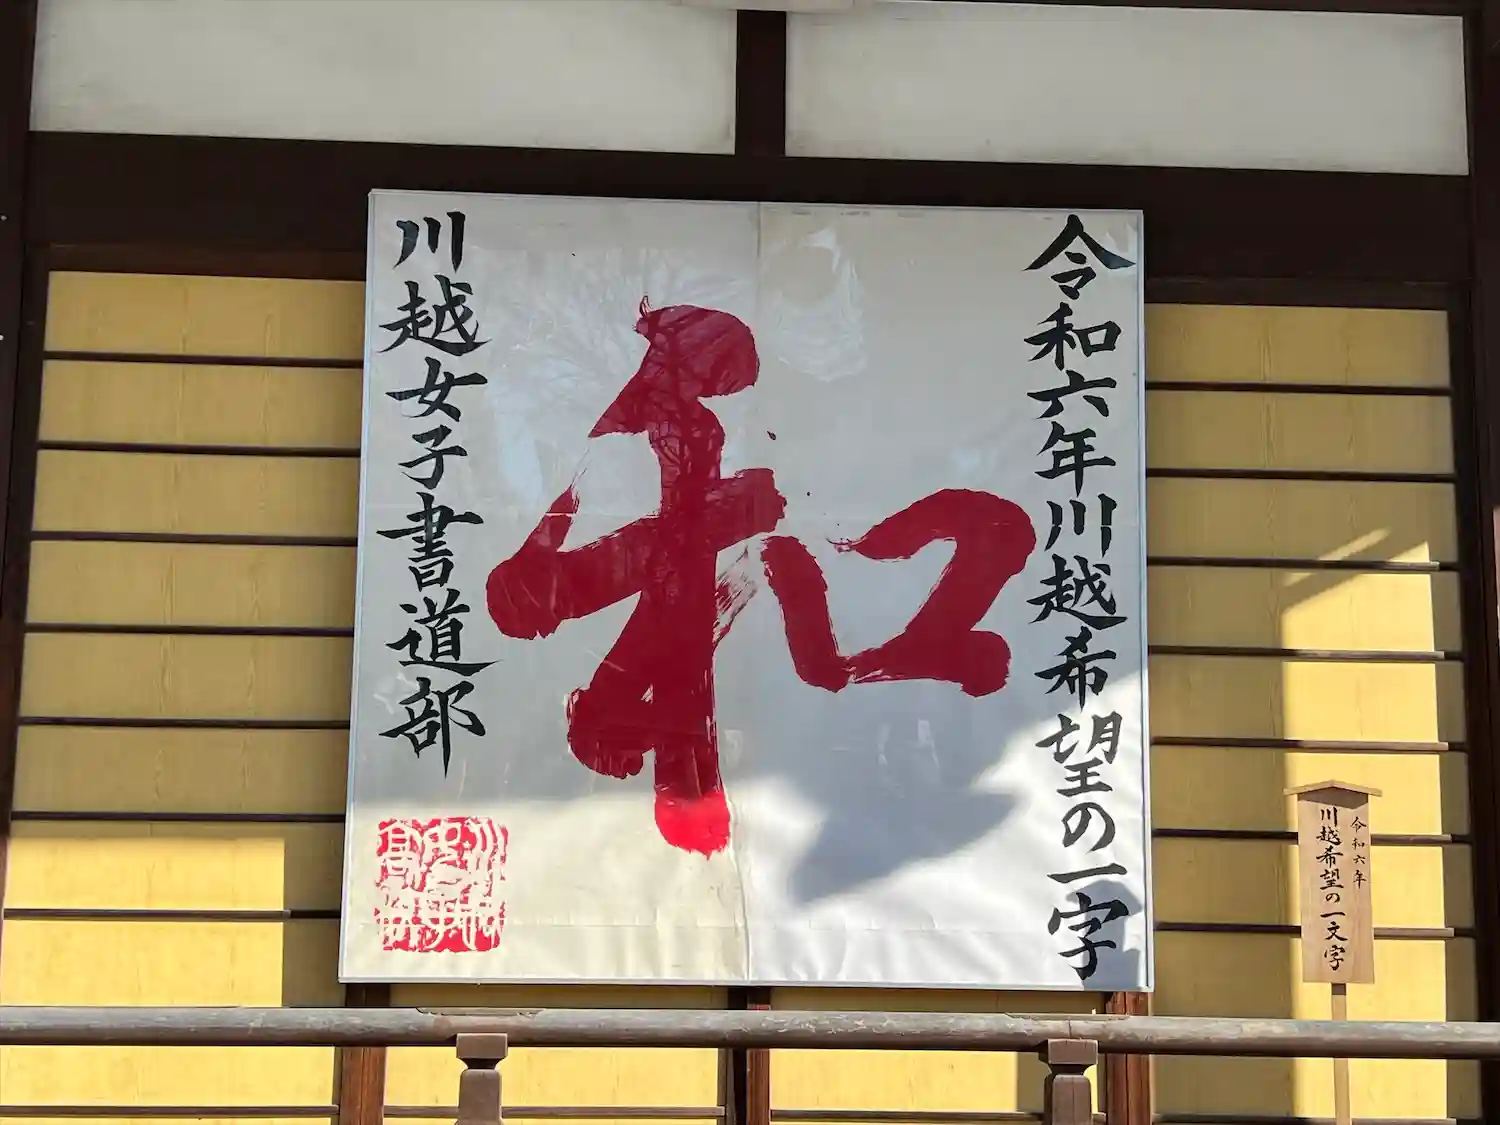 令和六年川越希望の一字
和
川越女子書道部
令和六年
川越希望の一文字